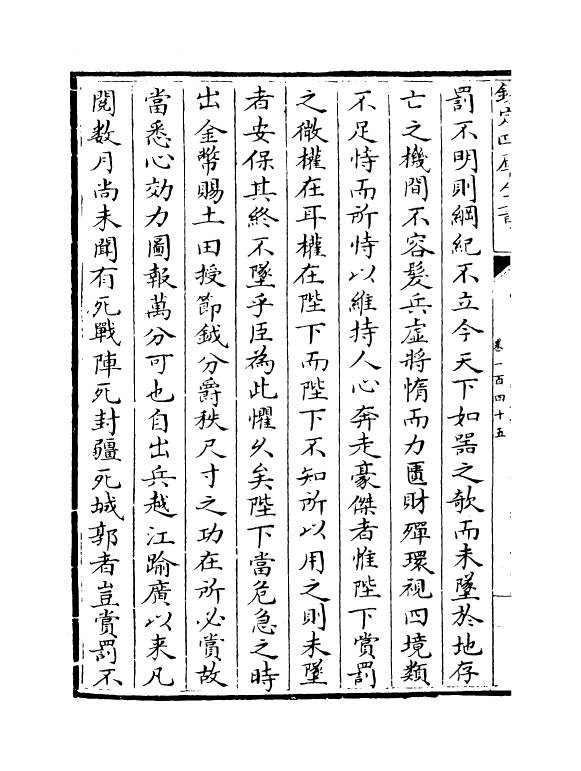 欽定四庫全書
卷一百四十五
罰不明則綱紀不立今天下如器之欹而未墜於地存
亡之機間不容髪兵虛將惰而力匱財殫環視四境類
不足恃而所恃以維持人心奔走豪傑者惟陛下賞罰
之微權在耳權在陛下而陛下不知所以用之則未墜
者安保其終不墜乎臣為此懼久矣陛下當危急之時
出金幣賜土田授節鉞分爵秩尺寸之功在所必賞故
當悉心効力圖報萬分可也自出兵越江踰廣以来凡
閱数月尚未聞有死戰陣死封疆死城郭者豈賞罰不